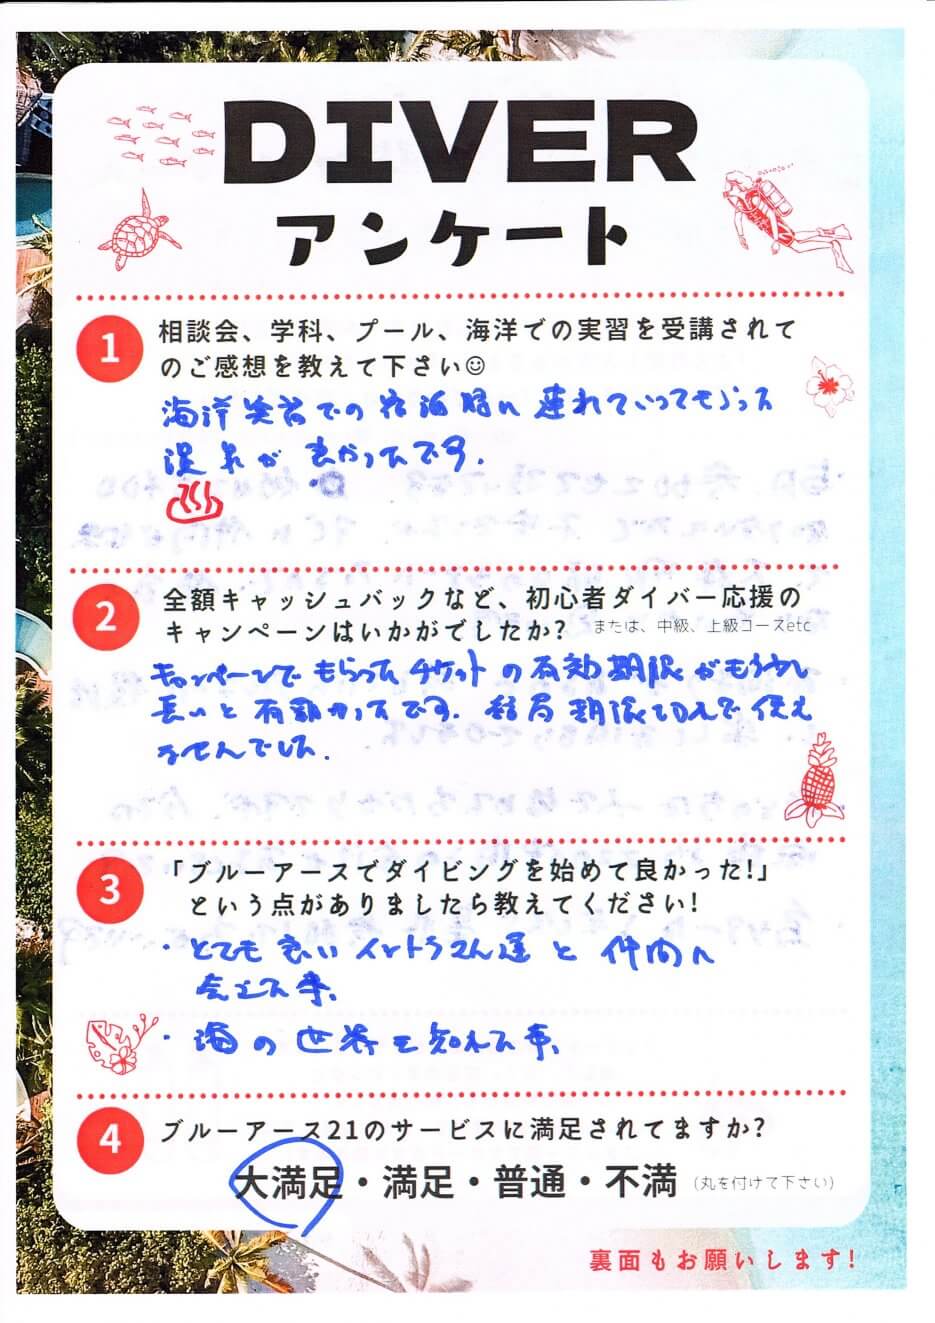 DIVER
アンケート
1
相談会、学科、プール、海洋での実習を受講されて
のご感想を教えて下さい☺
海洋実習での宿泊時に連れていってもらった
温泉が良かったです。
2
全額キャッシュバックなど、初心者ダイバー応援の
キャンペーンはいかがでしたか? または、中級、上級コースetc
キャンペーンでもらったチケットの有効期限がもう少し
長いと有難かったです。結局期限切れで使え
ませんでした。
3
「ブルーアースでダイビングを始めて良かった!」
という点がありましたら教えてください!
・とても良いイントラさん達と仲間に
会えた事、
・海の世界を知れた事、
4
ブルーアース21のサービスに満足されてますか?
大満足・満足・普通・不満 (丸を付けて下さい)
裏面もお願いします!